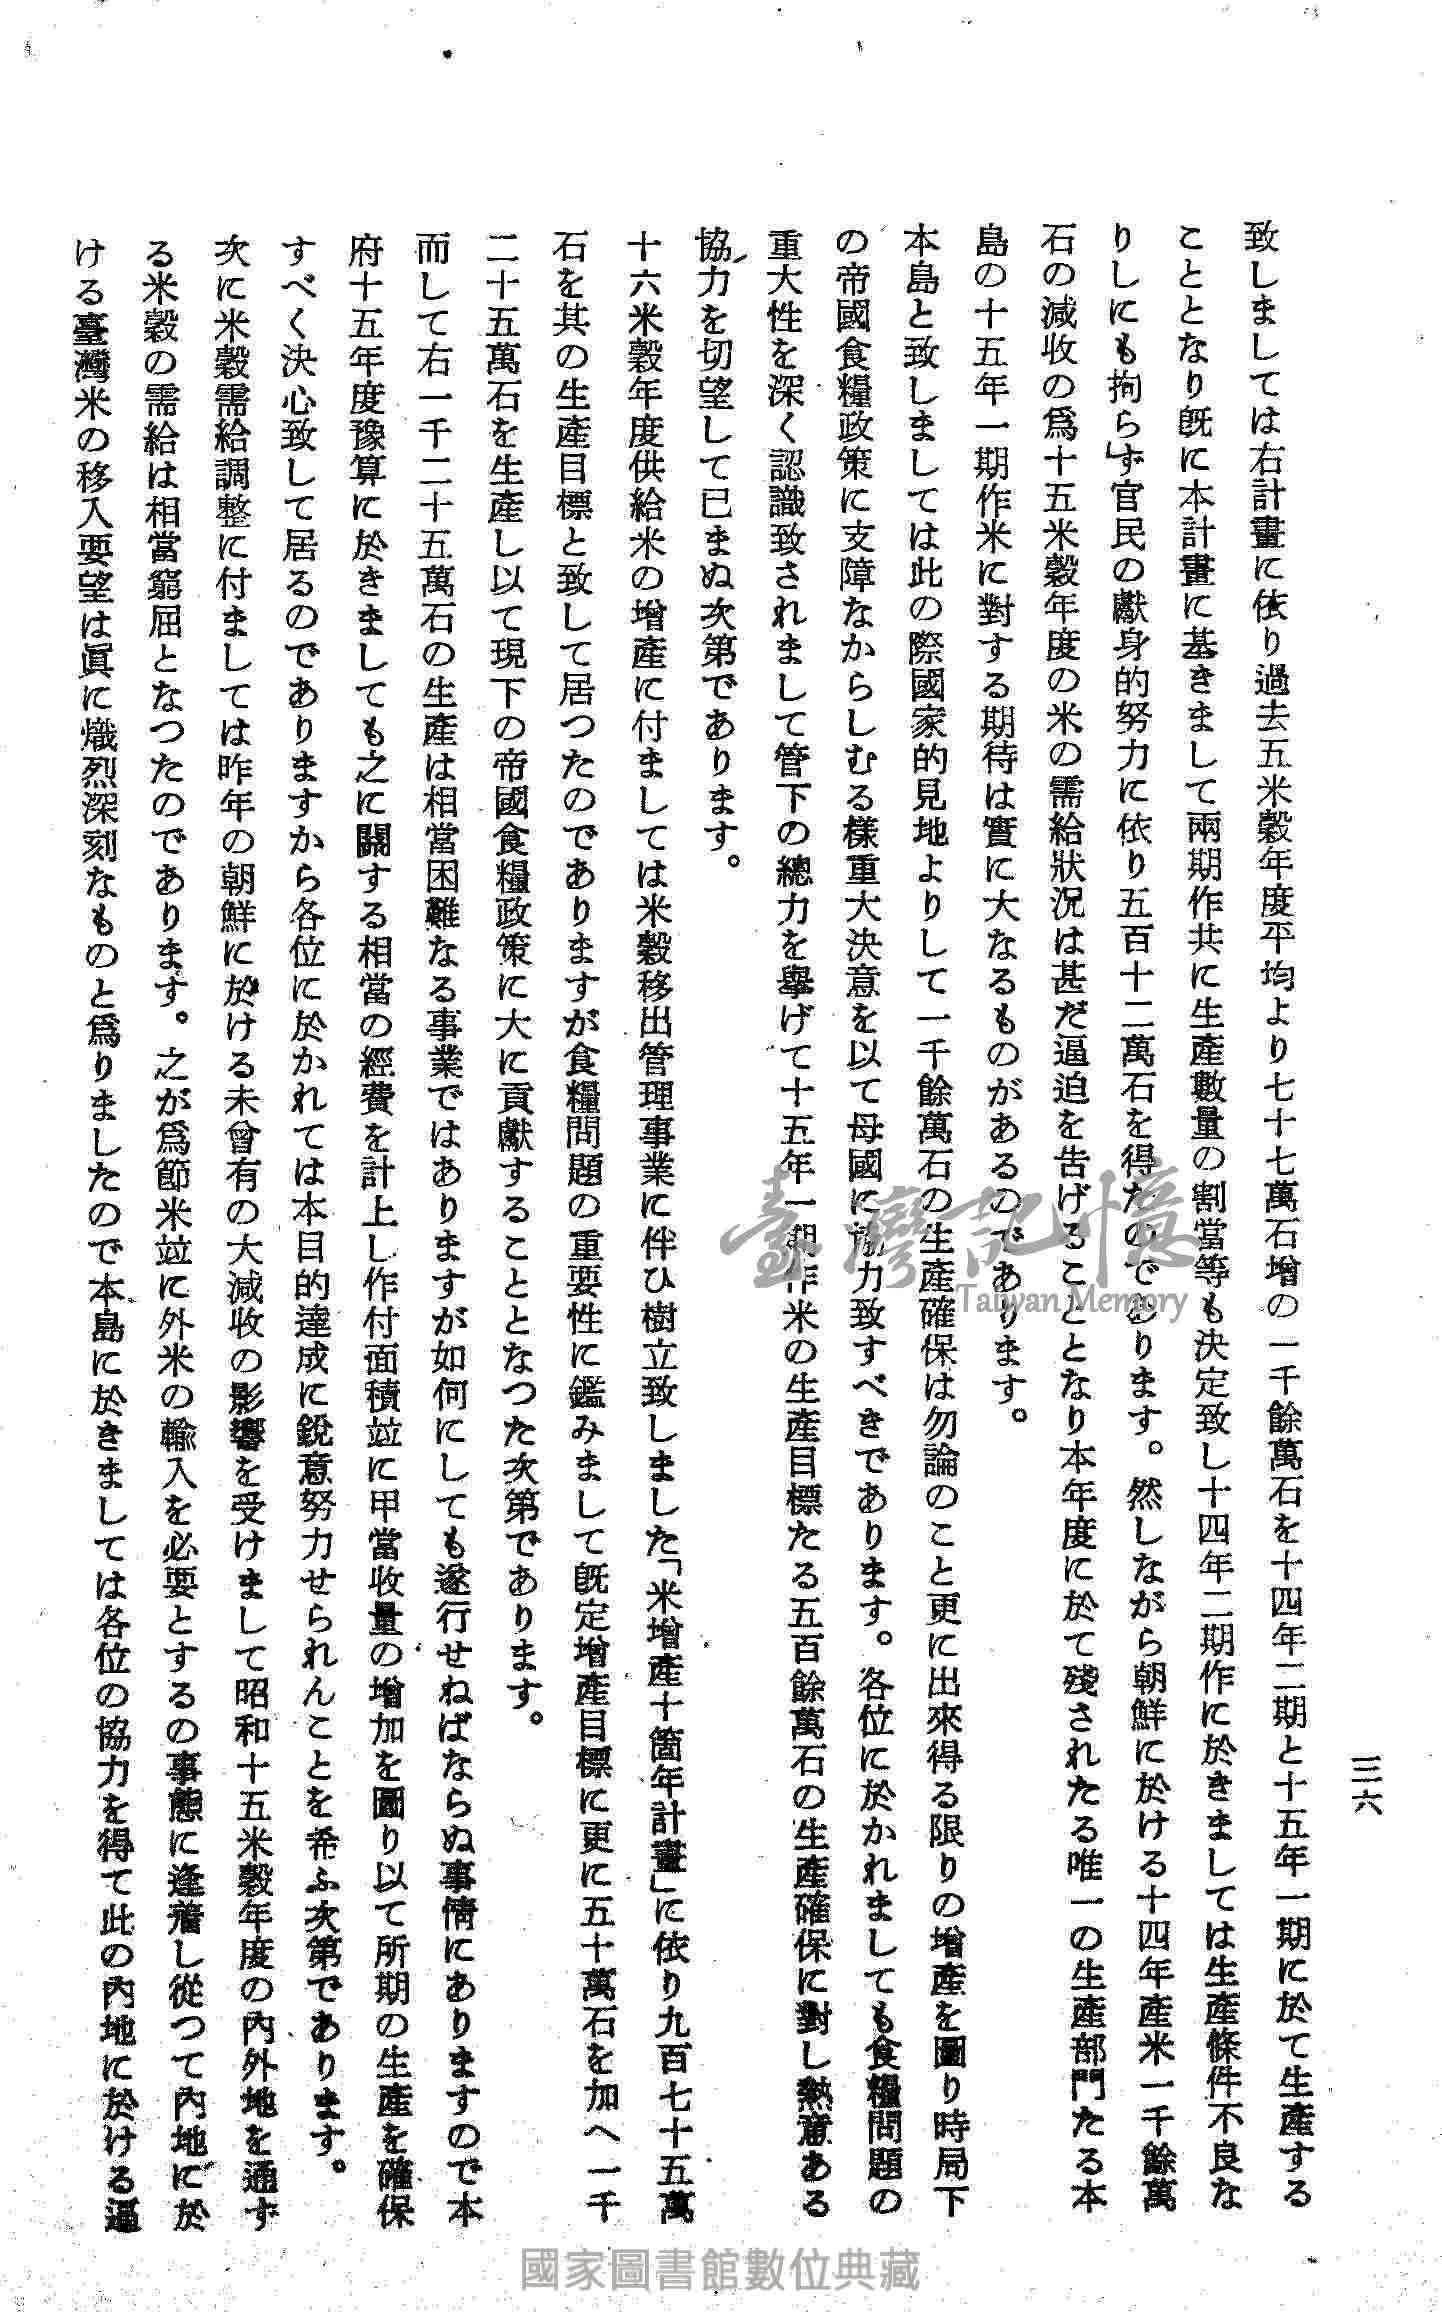 三六
致しましては右計畫に依り過去五米穀年度平均より七十七萬石增の一千餘萬石を十四年二期と十五年一期に於て生產する
こととなり旣に本計畫に基きまして兩期作共に生產數量の割當等も決定致し十四年二期作に於きましては生產條件不良な
りしにも拘らず官民の獻身的努力に依り五百十二萬石を得たのであります。然しながら朝鮮に於ける十四年產米一千餘萬
石の減收の爲十五米穀年度の米の需給狀況は甚だ逼迫を告げることとなり本年度に於て殘されたる唯一の生產部門たる本
島の十五年一期作米に對する期待は實に大なるものがあるのであります。
本島と致しましては此の際國家的見地よりして一千餘萬石の生產確保は勿論のこと更に出來得る限りの增產を圖り時局下
の帝國食糧政策に支障なからしむる樣重大決意を以て母國に協力致すべきであります。各位に於かれましても食糧問題の
重大性を深く認識致されまして管下の總力を擧げて十五年一期作米の生產目標たる五百餘萬石の生產確保に對し熱意ある
協力を切望して已まぬ次第であります。
十六米穀年度供給米の增產に付ましては米穀移出管理事業に伴ひ樹立致しました「米增產十箇年計畫」に依り九百七十五萬
石を其の生產目標と致して居つたのでありますが食糧問題の重要性に鑑みまして旣定增產目標に更に五十萬石を加へ一千
二十五萬石を生產し以て現下の帝國食糧政策に大に貢獻することとなつた次第であります。
而して右一千二十五萬石の生產は相當困難なる事業ではありますが如何にしても遂行せねばならぬ事情にありますので本
府十五年度豫算に於きましても之に關する相當の經費を計上し作付面積竝に甲當收量の增加を圖り以て所期の生產を確保
すべく決心致して居るのでありますから各位に於かれては本目的達成に銳意努力せられんことを希ふ次第であります。
次に米穀需給調整に付ましては昨年の朝鮮に於ける未曾有の大減收の影響を受けまして昭和十五米穀年度の內外地を通ず
る米穀の需給は相當窮屈となつたのであります。之が爲節米竝に外米の輸入を必要とするの事態に逢着し從つて內地に於
ける臺灣米の移入要望は眞に熾烈深刻なものと爲りましたので本島に於きましては各位の協力を得て此の內地に於ける逼
臺灣記憶
Taiwan Memory
國家圖書館數位典藏